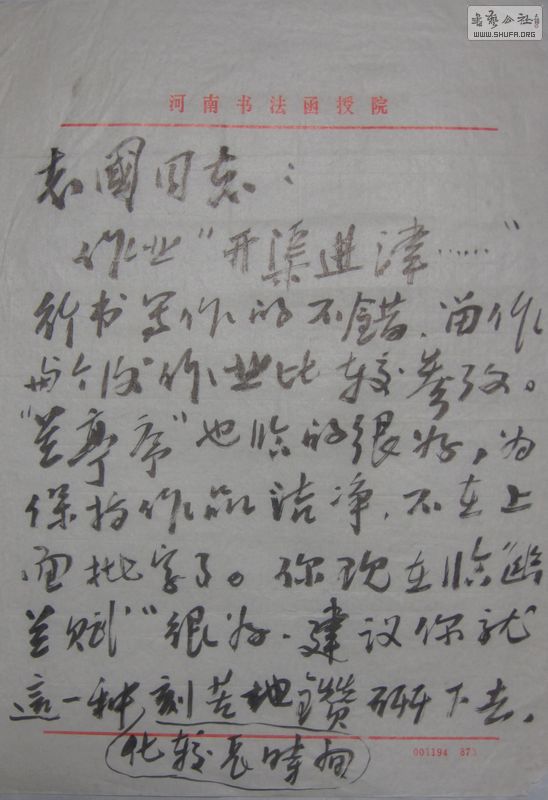 书艺公社
WWW.SHUFA.ORG
河南书法函授院
志國同志：
作业“开渠进津……”
行书写作的不错，留作
与今后作业比较参改。
“兰亭序”也临的很好，为
保持作品洁净，不在上
面批字了。你现在临“幽
兰赋”很好。建议你就
這一种刻苦地鑽研下去，
花较长時间
001194 873